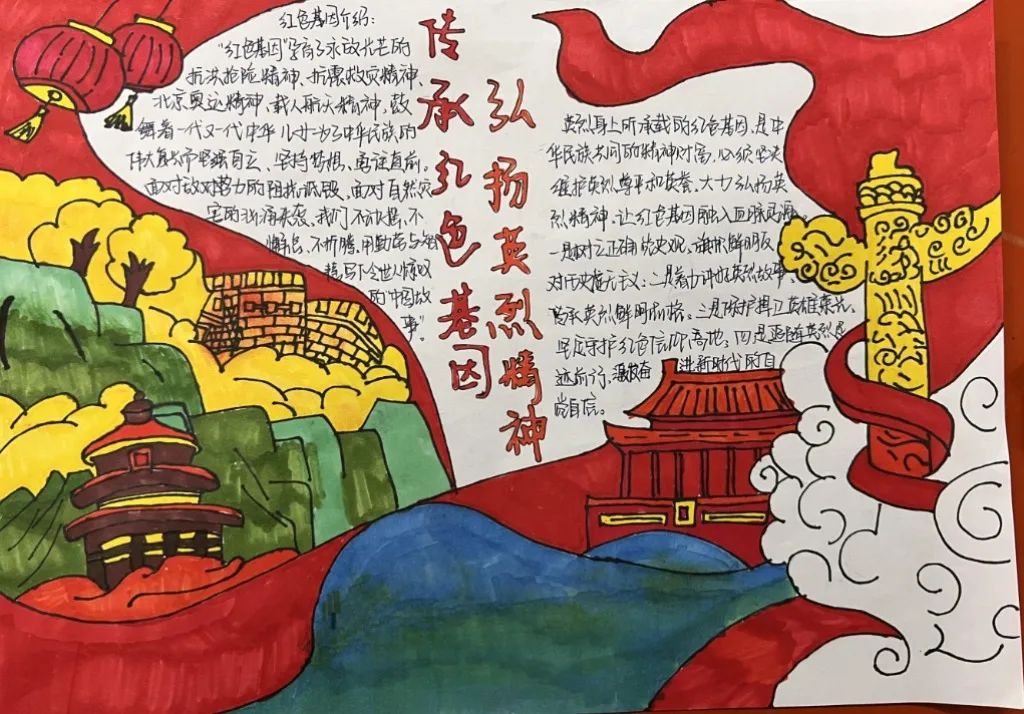 红色基因介绍:
"红色基因"孕育了永放光芒的
抗洪抢险精神、抗震救灾精神、
北京奥运精神、载人航天精神,鼓
舞着一代又一代中华儿女
中华民族的
伟大复兴而坚强自立、坚持梦想、勇往直前。
面对敌对势力的阻挠诋毁,面对自然灾
害的汹涌来袭,我们不动摇、不
懈怠、不折腾,用勤劳与智
慧写下令世人惊叹
的中国故
事"
传承红色基因
弘扬英烈精神
英烈身上所承载的红色基因,是中
华民族共同的精神财富,必须坚决
维护英烈尊严和荣誉,大力弘扬英
烈精神,让红色基因融入血脉
一是树立正确的史观,旗帜鲜明反
对历史虚无主义;二是着力讲好英烈故事,
传承英烈鲜明品格。三是保护捍卫英雄荣光,
坚定守护红色信仰高地;四是追随英烈足
迹前行,
进新时代的自
尚自信。